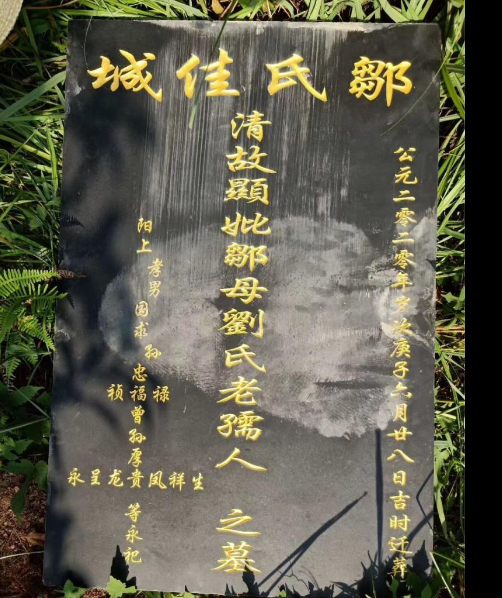 鄒氏佳城
公元二零二零年岁次庚子六月廿八日吉时迁葬
清故顯妣鄒母劉氏老孺人之墓
阳上孝男国求孙忠
禄福祯
曾孙厚
生祥凤贵龙呈永
等永祀